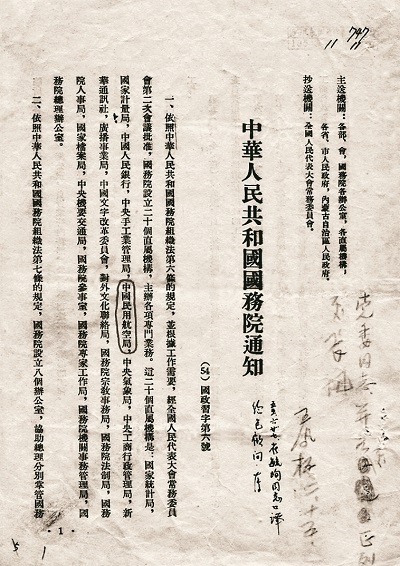 747
主送機關：各部、會，國務院各辦公室，各直屬機構，
各省、市人民政府，內蒙古自治區人民政府。
抄送機關：全國人民代表大會常務委員會。
中華人民共和國國務院通知
（54）國政習字第六號
一、依照中華人民共和國國務院組織法第六條的規定，並根據工作需要，經全國人民代表大會常務委員
會第二次會議批准，國務院設立二十個直屬機構，主辦各項專門業務。這二十個直屬機構是：國家統計局，
國家計量局，中國人民銀行，中央手工業管理局，中國民用航空局，中央氣象局，中央工商行政管理局，新
華通訊社，廣播事業局，中國文字改革委員會，對外文化聯絡局，國務院宗教事務局，國務院法制局，國務
院人事局，國家檔案局，中央機要交通局，國務院參事室，國務院專家工作局，國務院機關事務管理局，國
務院總理辦公室。
二、依照中華人民共和國國務院組織法第七條的規定，國務院設立八個辦公室，協助總理分別掌管國務
·1·